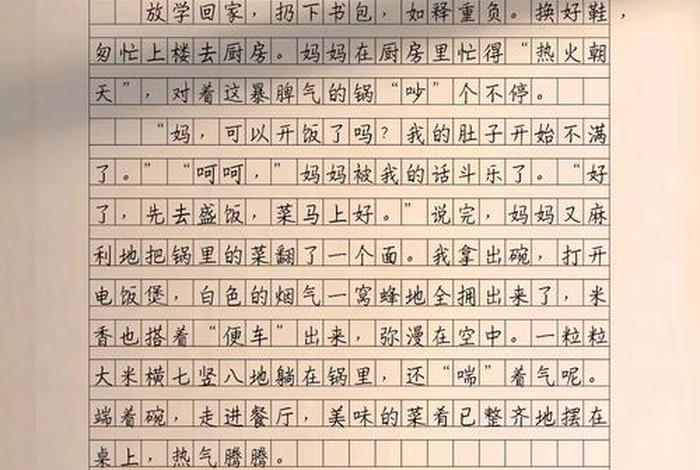 放学回家，扔下书包，如释重负。换好鞋，
匆忙上楼去厨房。妈妈在厨房里忙得“热火朝
天”，对着这暴脾气的锅“吵”个不停。
“妈，可以开饭了吗？我的肚子开始不满
了。”“呵呵，”妈妈被我的话斗乐了。“好
了，先去盛饭，菜马上好。”说完，妈妈又麻
利地把锅里的菜翻了一个面。我拿出碗，打开
电饭煲，白色的烟气一窝蜂地全拥出来了，米
香也搭着“便车”出来，弥漫在空中。一粒粒
大米横七竖八地躺在锅里，还“喘”着气呢。
端着碗，走进餐厅，美味的菜肴已整齐地摆在
桌上，热气腾腾。